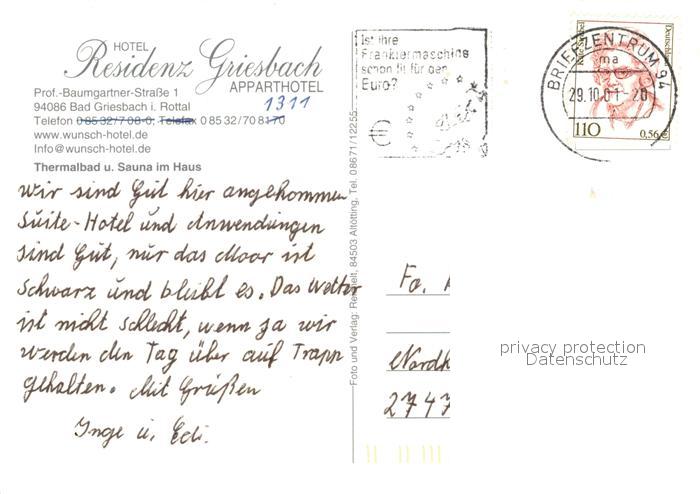 HOTEL
Residenz Griesbach
APPARTHOTEL
Prof.-Baumgartner-Straße 1
94086 Bad Griesbach i. Rottal
1311
Telefon 0 85 32/7 08-0, Telefax 0 85 32/70 8170
www.wunsch-hotel.de
Info@wunsch-hotel.de
Thermalbad u. Sauna im Haus
Wir sind Gut hier angekommen
Suite-Hotel und Anwendungen
sind Gut, nur das Moor ist
Schwarz und bleibt es. Das Wetter
ist nicht schlecht, wenn ja wir
werden den Tag über auf Trapp
gehalten. Mit Grüßen
Inge u. Edi.
Foto und Verlag: Reichelt, 84503 Altötting, Tel. 08671/12255
Ist Ihre
Frankiermaschine
schon fit für den
Euro?
€
BRIEFZENTRUM 94
ma
29.10.01-20
Deutschland
110
0,56€
Fa.
Nordh
2747
privacy protection
Datenschutz